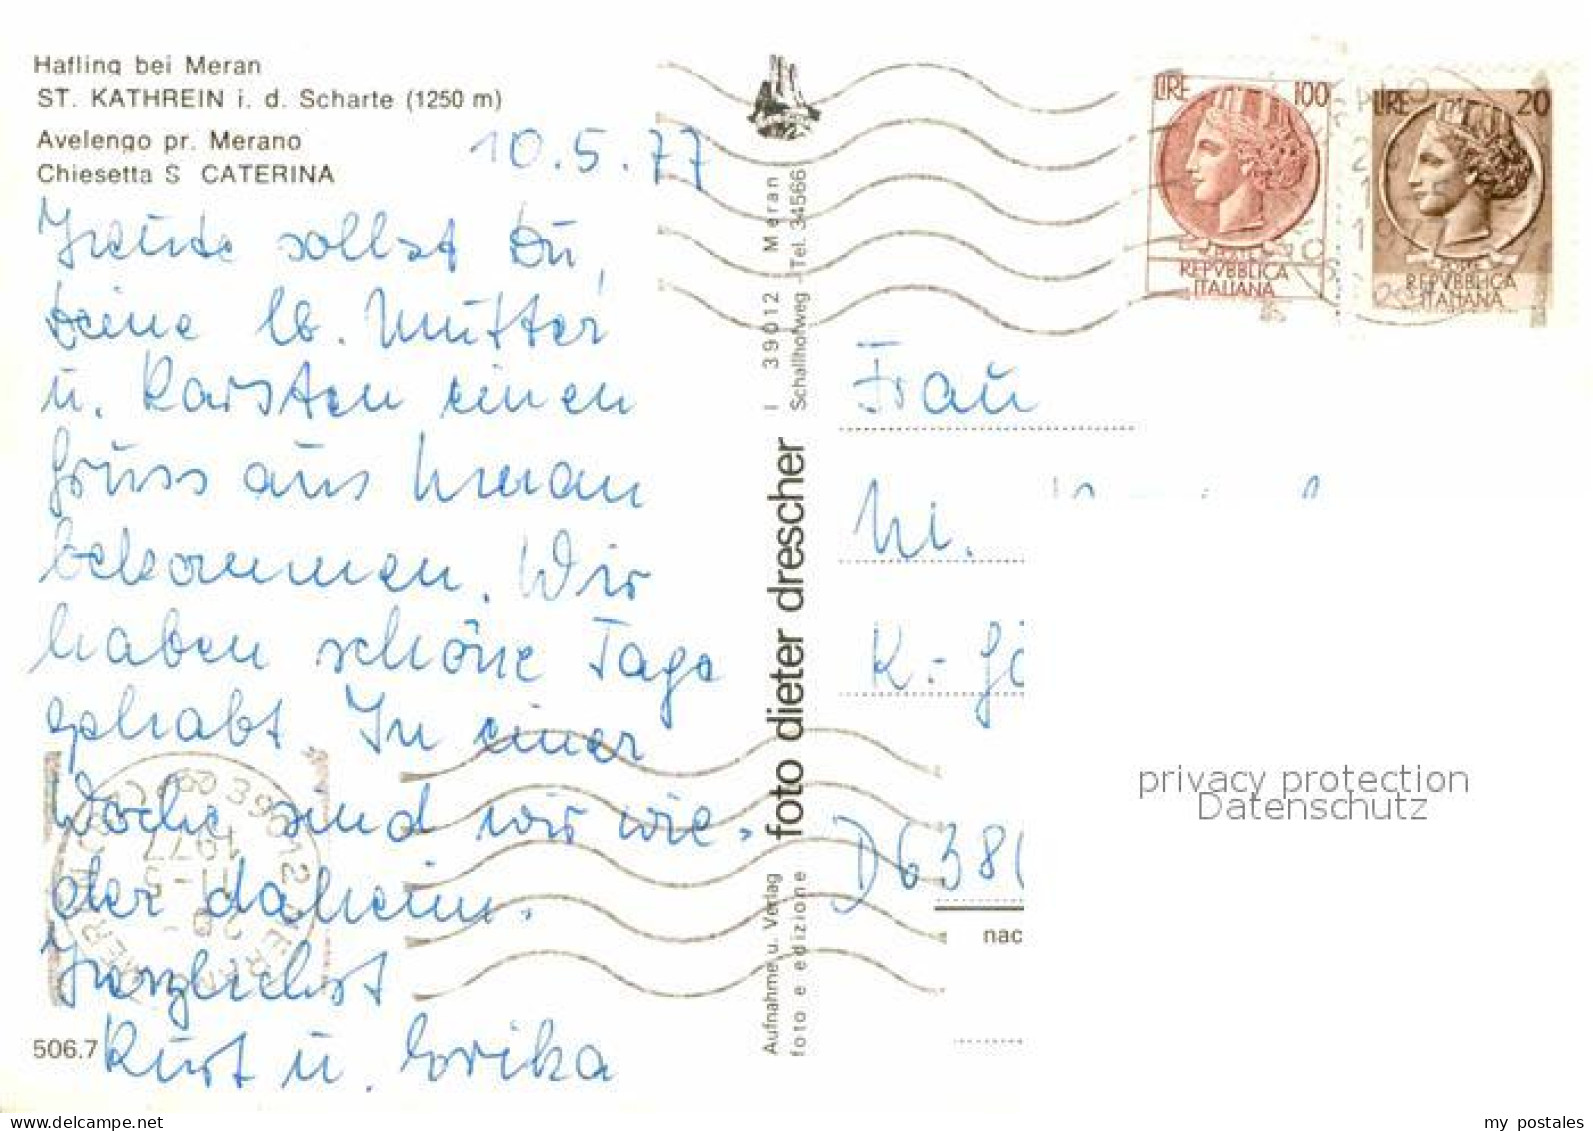 Hafling bei Meran
ST. KATHREIN i. d. Scharte (1250 m)
Avelengo pr. Merano
Chiesetta S CATERINA
10.5.77
Heute sollst Du,
Deine lb. Mutter
u. Karsten einen
Gruss aus Meran
bekommen. Wir
haben schöne Tage
gehabt. In einer
Woche sind wir wie-
der daheim.
Herzlichst
Kurt u. Erika
506.7
I 39012 Meran
Schallhofweg - Tel. 34566
foto dieter drescher
Aufnahme u. Verlag
foto e edizione
LIRE 100
POSTE
REPVBBLICA
ITALIANA
LIRE 20
POSTE
REPVBBLICA
ITALIANA
Frau
M.
K.- Gö
D638
nac
39012 MERANO
11-5
1977
privacy protection
Datenschutz
my postales